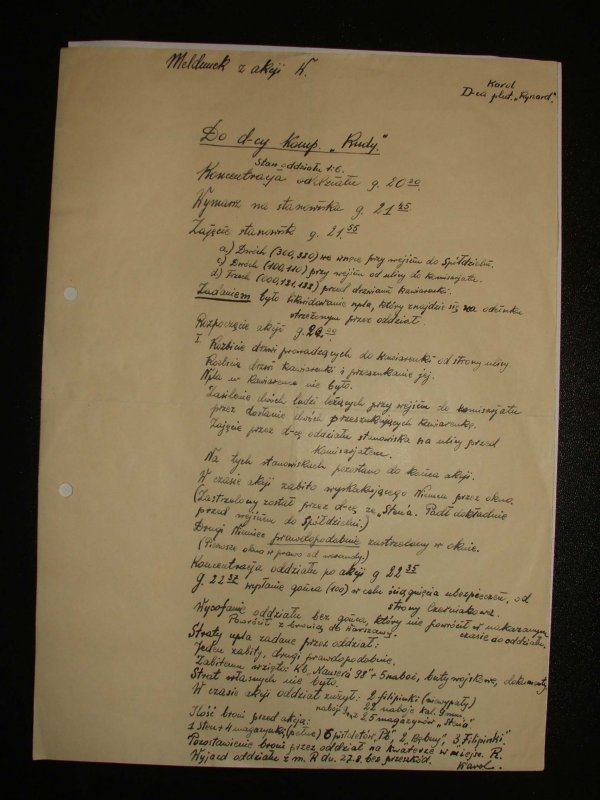 Meldunek z akcji W.
Karol
D-ca plut. „Ryszard".
Do d-cy komp. „Rudy."
Stan oddziału 1:6.
Koncentracja oddziału g. 20 20.
Wymarsz na stanowiska g. 21 45.
Zajęcie stanowisk g. 21 55
a.) Dwóch (300, 330) we wnęce przy wejściu do Spółdzielni.
c) Dwóch (100, 110) przy wejściu od ulicy do komisarjatu.
d) Trzech (000, 121, 122) przed drzwiami kawiarenki.
Zadaniem było likwidowanie npla, który znajdzie się na odcinku
strzeżonym przez oddział.
Rozpoczęcie akcji g.
I. Rozbicie drzwi prowadzących do kawiarenki od strony ulicy
Rozbicie drzwi kawiarenki i przeszukanie jej.
Npla w kawiarence nie było.
Zasilenie dwóch ludzi leżących przy wejściu do komisarjatu
przez dosłanie dwóch przeszukujących kawiarenkę.
Zajęcie przez d-cę oddziału stanowiska na ulicy przed
komisarjatem.
Na tych stanowiskach pozostano do końca akcji.
W czasie akcji zabito wyskakującego Niemca przez okno.
(Zastrzelony został przez d-cę ze „Sten'a. Padł dokładnie
przed wejściem do Spółdzielni.)
Drugi Niemiec prawdopodobnie zastrzelony w oknie.
(Pierwsze okno w prawo od werandy.)
Koncentracja oddziału po akcji g 22 35
g. 22 37 wysłanie gońca (100) w celu ściągnięcia ubezpieczeń, od
strony Czerniakowa.
Wycofanie oddziału bez gońca, który nie powrócił w nakazanym
czasie do oddziału.
Powrócił z bronią do Warszawy.
Straty npla zadane przez oddział:
Jeden zabity, drugi prawdopodobnie.
Zabitemu wzięto: Kb. Mausera 98" + 5 naboi, buty wojskowe, dokumenty
Strat własnych nie było.
W czasie akcji oddział zużył: 2 filipinki (niewypały)
22 naboje kal. 9 mm
naboje z 25 magazynów „Stena"
Ilość broni przed akcją:
1 Sten + 4 magazynki, (pełne) 6 pistoletów, „Pb", 2 „Bębny", 3 „Filipinki".
Pozostawienie broni przez oddział na kwaterze w miejsc. R.
Wyjazd oddziału z m. R du. 27.8. bez przeszkód.
Karol.